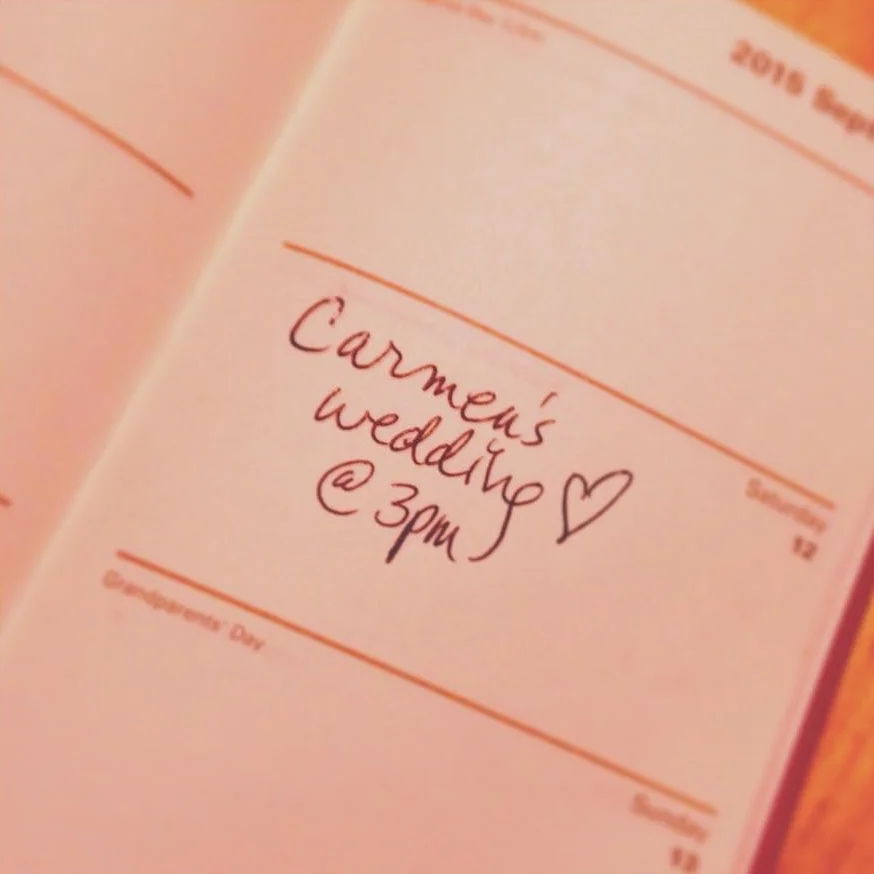 2015 Sept
Carmen's
wedding ♡
@ 3pm
Saturday
12
Grandparents' Day
Sunday
13